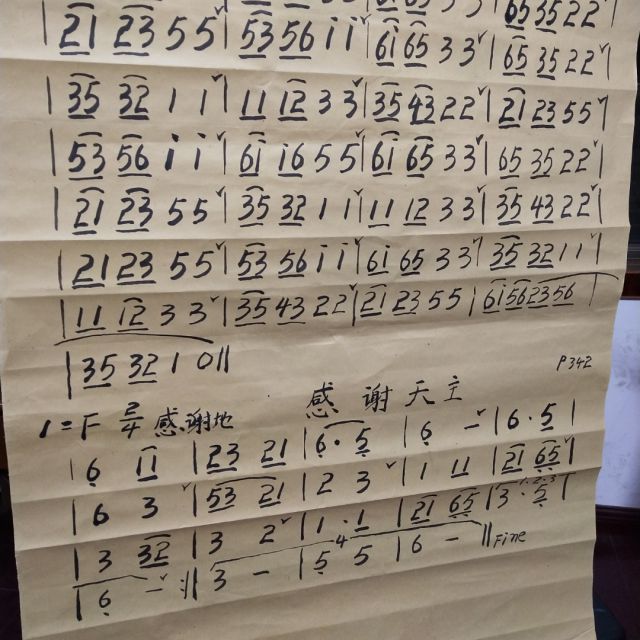 65 35 2 2 |
| 21 23 5 5 | 53 56 i i | 6i 65 3 3 | 65 35 2 2 |
| 35 32 1 1 | 11 12 3 3 | 35 43 2 2 | 21 23 5 5 |
| 53 56 i i | 6i i6 5 5 | 6i 65 3 3 | 65 35 2 2 |
| 21 23 5 5 | 35 32 1 1 | 11 12 3 3 | 35 43 2 2 |
| 21 23 5 5 | 53 56 i i | 6i 65 3 3 | 35 32 1 1 |
| 11 12 3 3 | 35 43 2 2 | 21 23 5 5 | 61 56 23 56 |
| 35 32 1 0 ||
P342
感谢天主
1=F 2/4 感谢地
| 6 11 | 23 21 | 6· 5 | 6 - | 6· 5 |
| 6 3 | 53 21 | 2 3 | 1 11 | 21 65 |
| 3 32 | 3 2 | 1· 1 | 21 65 | 3· 2 |
| 6 - :|| 3 - | 5 5 | 6 - || Fine